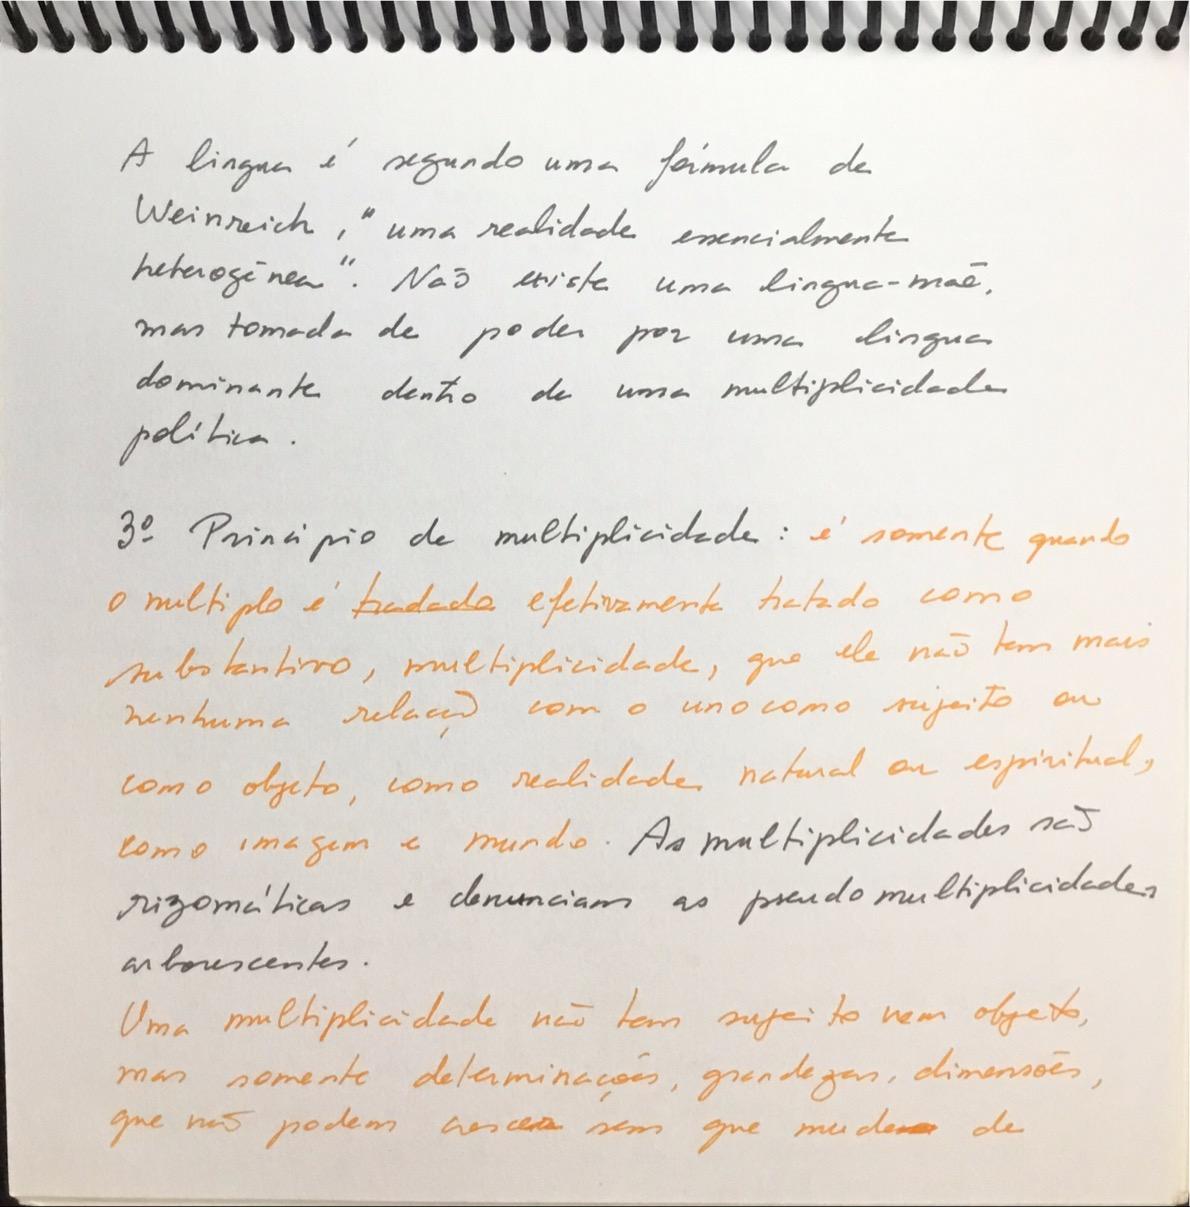 A lingua é segundo uma fórmula de
Weinreich, "uma realidade essencialmente
heterogênea". Não existe uma lingua-mãe,
mas tomada de poder por uma lingua
dominante dentro de uma multiplicidade
política.
3º Princípio de multiplicidade: é somente quando
o multiplo é tradado efetivamente tratado como
substantivo, multiplicidade, que ele não tem mais
nenhuma relação com o uno como sujeito ou
como objeto, como realidade natural ou espiritual,
como imagem e mundo. As multiplicidades são
rizomáticas e denunciam as pseudomultiplicidades
arborescentes.
Uma multiplicidade não tem sujeito nem objeto,
mas somente determinações, grandezas, dimensões,
que não podem crescer sem que mude de